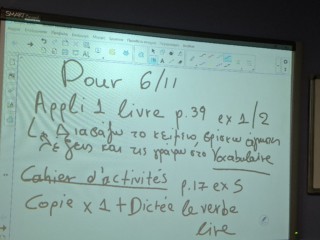 SMART
Pour 6/11
Appli 1 livre p.39 ex 1/2
Διαβάζω το κείμενο, βρίσκω άγνωστες
λέξεις και τις γράφω στο Vocabulaire
Cahier d'activités p.17 ex 5
Copie x 1 + Dictée le verbe
lire